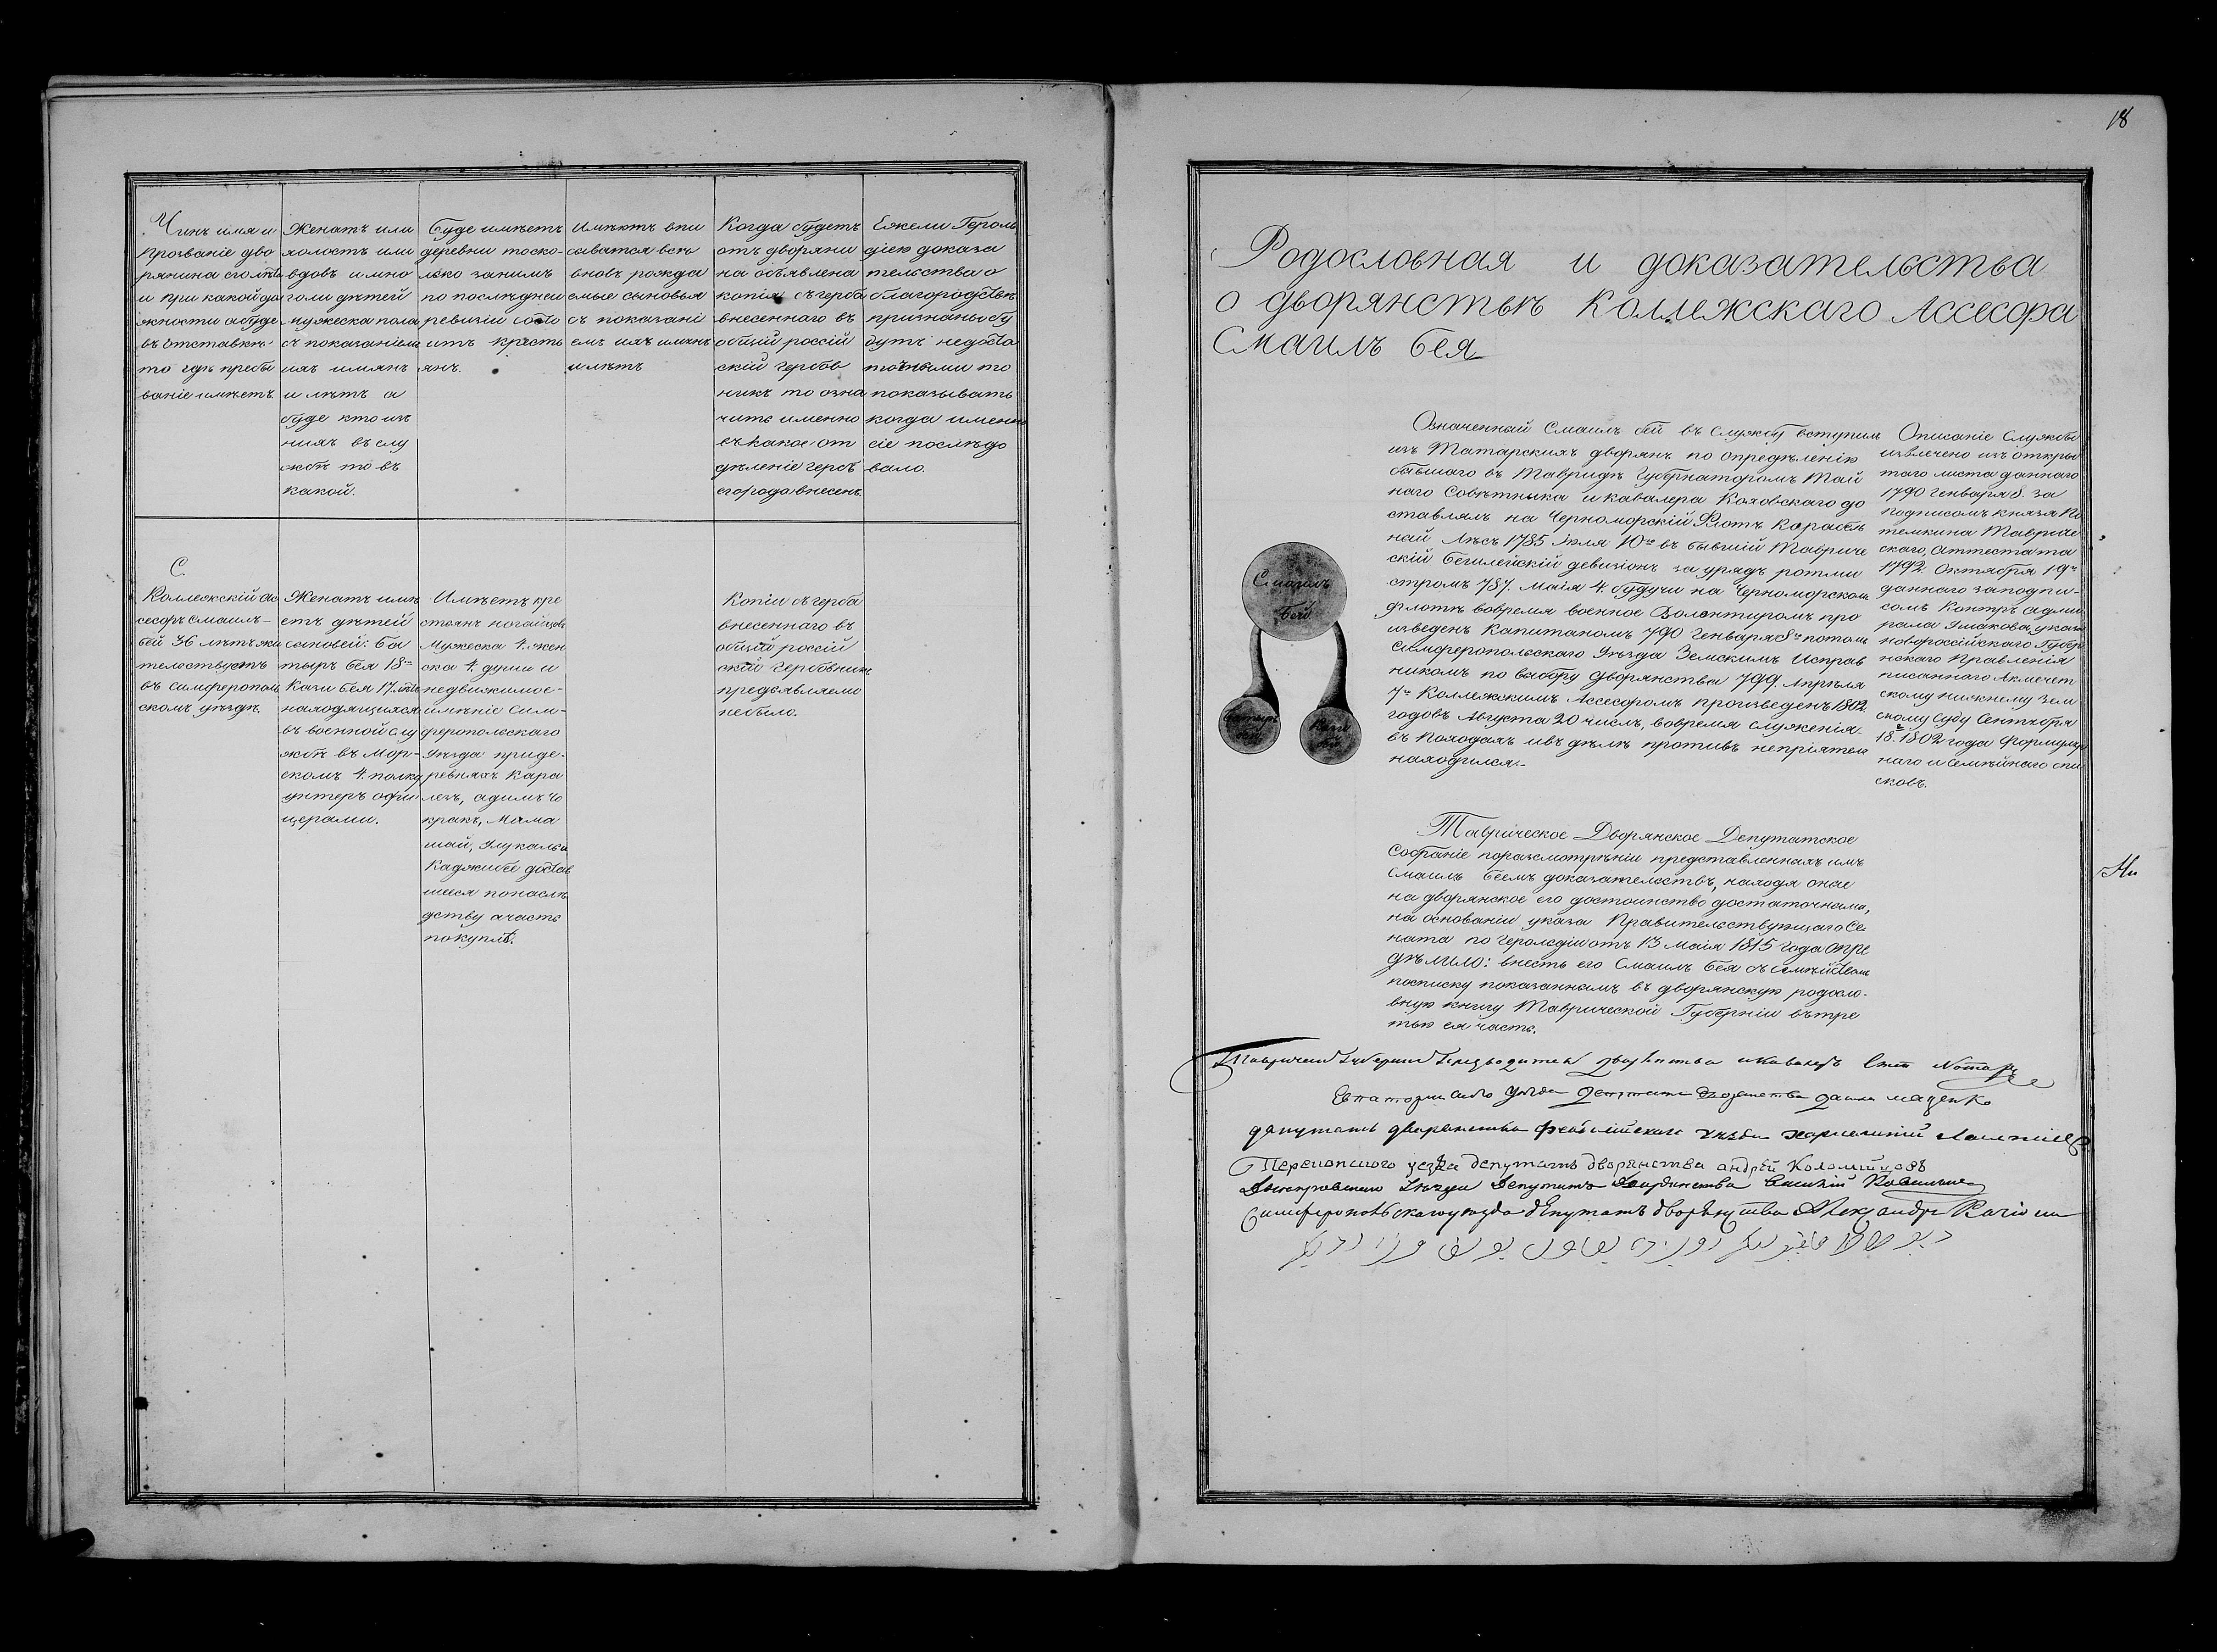 18
Чинъ имя и
прозваніе дво
рянина сколькo
и при какой до
жности а буде
въ отставкѣ
то гдѣ пребы
ваніе имѣетъ
Женатъ или
холостъ или
вдовъ и мно
голи дѣтей
мужеска пола
съ показаніемъ
ихъ имянъ
и лѣтъ а
буде кто изъ
нихъ въ слу
жбѣ то въ
какой.
Буде имѣетъ
деревни то ско-
лько за нимъ
по послѣдней
ревизіи состо
итъ кресть
янъ.
Имѣютъ впи
сыватся всѣ
вновь рожда
емые сыновья
съ показані
емъ ихъ имянъ
и лѣтъ
Когда будетъ
отъ дворяни
на объявлена
копія съ герба
внесеннаго въ
общій россій
скій гербов
никъ то озна
чить именно
въ какое от
дѣленіе гербъ
его рода внесенъ
Ежели Героль
діею доказа
тельства о
благородствѣ
признаны бу
дутъ недоста
точными то
показывать
когда именно
сіе послѣдо
вало.
С.
Коллежскій Ас
сесоръ Смаилъ-
бей 36 лѣтъ жи
тельствуетъ
въ симферополь
скомъ уѣздѣ.
Женатъ имѣ
етъ дѣтей
сыновей: Ба
тыръ бея 18
Кази бея 17 лѣтъ
находящихся
въ военной слу
жбѣ въ Мор-
скомъ 4. полку
унтеръ офи
церами.
Имѣетъ кре
стьянъ ногайцовъ
мужеска 4. жен
ска 4. души и
недвижимое-
имѣніе Сим-
феропольскаго
Уѣзда при де-
ревняхъ Кара
лезъ, адимъ Чо
кракъ, Мама
шай, Улукалы
Каджибе достав
шееся по наслѣ
дству а часть
покуплѣ.
Копіи съ герба
внесеннаго въ
общій россій
скій гербовникъ
предъявляемо
небыло.
Родословная и доказательства
о дворянствѣ Коллежскаго Ассесора
Смаилъ бея
Смаилъ
бей
Батыръ
бей
Кази
бей
Означенный Смаилъ бей въ службу вступилъ
изъ Татарскихъ дворянъ по опредѣленію
бывшаго въ Тавридѣ Губернаторомъ Тай
наго Совѣтника и кавалера Коховскаго до
ставлялъ на Черноморскій Флотъ Корабель
ный Лѣсъ 1785 Іюля 10го въ бывшій Тавриче
скій Бешлейскій дивизіонъ за урядъ ротми
стромъ 787. Маія 4. будучи на Черноморскомъ
флотѣ вовремя военное Волентиромъ про
изведенъ Капитаномъ 790 Генваря 8го потомъ
Симферопольскаго Уѣзда Земскимъ Исправ
никомъ по выбору дворянства 799. Апрѣля
7го Коллежскимъ Ассесоромъ произведенъ 1802
годовъ Августа 20 числъ, вовремя служенія
въ походахъ и въ дѣлѣ противъ непріятеля
находился.-
Описаніе Службы
извлечено изъ откры
таго листа даннаго
1790 Генваря 8. за
подписомъ князя По
темкина Тавриче
скаго, Аттестата
1792. Октября 19го
даннаго за подпи-
сомъ Контръ адми
рала Ушакова, указа
новороссійскаго Губер
нскаго Правленія
писаннаго Акмечет
скому нижнему Зем
скому Суду Сентября
18го 1802 года Формуляр
наго и Семѣйнаго спи
сковъ.
Таврическое Дворянское Депутатское
Собраніе поразсмотрѣніи представленныхъ имъ
Смаилъ беемъ доказательствъ, находя оные
на дворянское его достоинство достаточными,
на основаніи указа Правительствующаго Се
ната по герольдіи отъ 13 Маія 1815 года опре
дѣлило: внесть его Смаилъ бея съ семѣйствомъ
посписку показаннымъ въ дворянскую родосло-
вную книгу Таврической Губерніи въ тре
тью ея часть.
дворянства и Кавалеръ Нотара
Евпаторийского уѣзда Депутатъ Дворянства маценко
депутатъ дворянства Феодосійскаго уѣзда
Перекопского уезда депутатъ дворянства андрей Коломийцовъ
Днепровскаго Уѣзда Депутатъ Дворянства Василий
Симферопольскаго уезда депутатъ дворянства Александръ
Ни